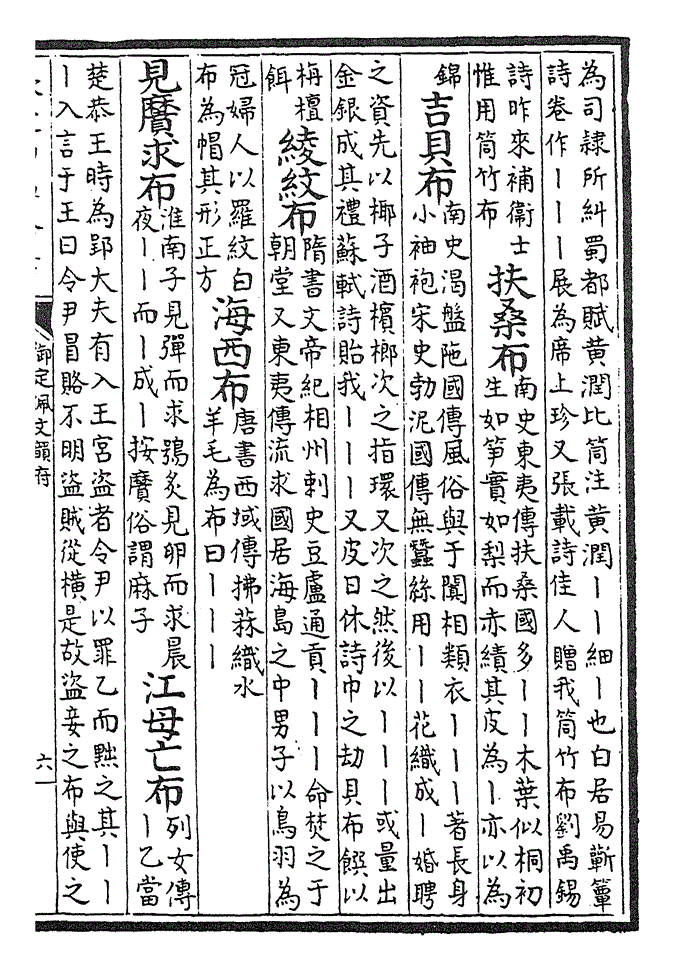 為司隷所糾蜀都賦黄潤比筒注黄潤丨丨細丨也白居易蘄簟
詩卷作丨丨丨展為席上珍又張載詩佳人贈我筒竹布劉禹錫
詩昨來補衞士
惟用筒竹布
扶桑布
南史東夷傳扶桑國多丨丨木葉似桐初
生如笋實如梨而赤績其皮為丨亦以為
錦
吉貝布
南史渴盤陁國傳風俗與于闐相類衣丨丨丨著長身
小袖袍宋史勃泥國傳無蠶絲用丨丨花織成丨婚聘
之資先以椰子酒檳榔次之指環又次之然後以丨丨丨或量出
金銀成其禮蘇軾詩貽我丨丨丨又皮日休詩巾之劫貝布饌以
栴檀
餌
綾紋布
隋書文帝紀相州刺史豆盧通貢丨丨丨命焚之于
朝堂又東夷傳流求國居海島之中男子以鳥羽為
冠婦人以羅紋白
布為帽其形正方
海西布
唐書西域傳拂菻織水
羊毛為布曰丨丨丨
見黂求布
淮南子見彈而求鴞炙見卵而求晨
夜丨丨而丨成丨按黂俗謂麻子
江母亡布
列女傳
丨乙當
楚恭王時為郢大夫有入王宮盜者令尹以罪乙而黜之其丨丨
丨入言于王曰令尹冒賂不明盜賊從橫是故盜妾之布與使之
御定佩文韻府
六